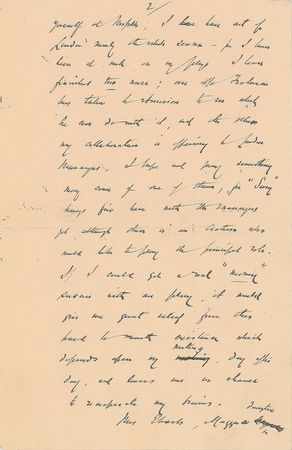 2/
yourself at Naples, I have been out of
London nearly the whole season – for I have
been at work on my plays. I have
finished two more; one
has taken to America to see what
he can do with it, and the other
my collaborateur is offering to London
Managers. I hope and pray something
may come of one of them, for
hangs fire here with the Managers
yet, although there is an actress who
would like to play the principal role.
If I could get a real "money"
success with one play, it would
give me great relief from this
hand to mouth existence which
depends upon my writing, day after
day, and leaves me no chance
to recuperate my brains.
daughter
Mrs